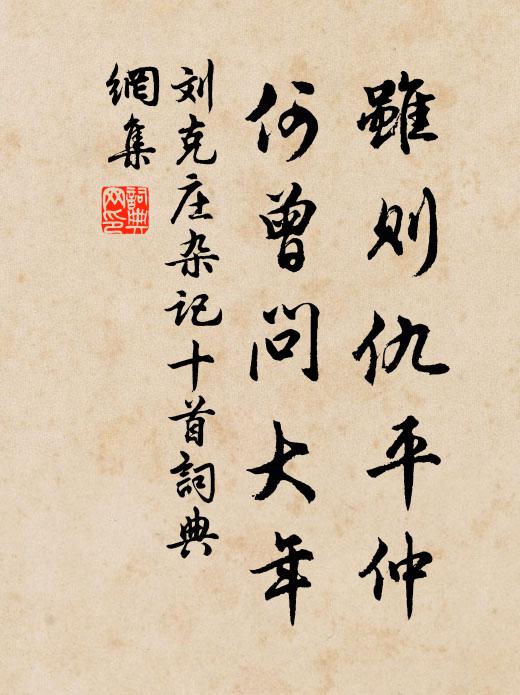 雖则仇平仲
何曾問大年
刘克庄杂记十首詞典
網集
詞典
网印